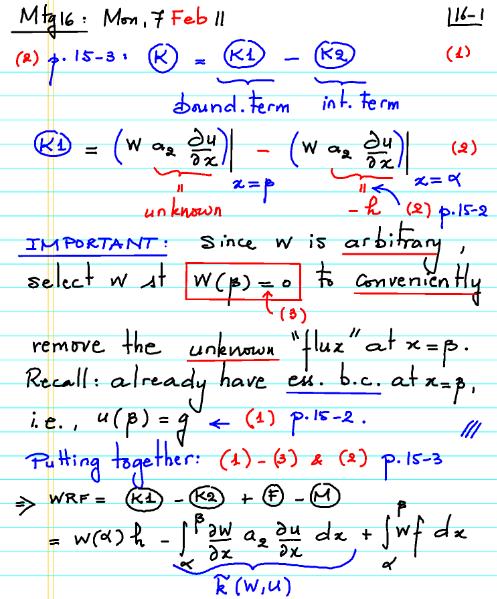 Mtg 16: Mon, 7 Feb 11 16-1
(2) p. 15-3: (K) = (K1) - (K2) (1)
bound. term int. term
(K1) = (w a₂ ∂u/∂x)| - (w a₂ ∂u/∂x)| (2)
x=β x=α
= unknown = -h (2) p. 15-2
IMPORTANT: Since w is arbitrary,
select w st W(β) = 0 to conveniently
(3)
remove the unknown "flux" at x=β.
Recall: already have ess. b.c. at x=β,
i.e., u(β) = g ← (1) p. 15-2. ///
Putting together: (1)-(3) & (2) p. 15-3
⇒ WRF = (K1) - (K2) + (F) - (M)
= w(α) h - ∫_α^β ∂w/∂x a₂ ∂u/∂x dx + ∫_α^β w f dx
k̃(w,u)